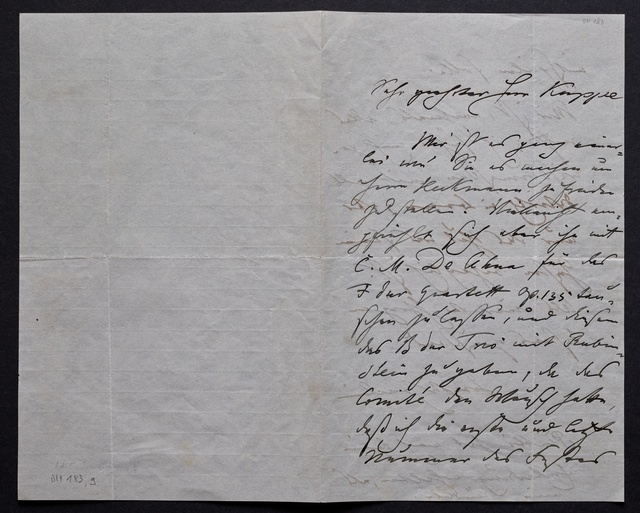 Sehr geehrter Herr Kuyper
Mir ist es ganz einer-
lei wie Sie es machen um
Herrn Heckmann zufrieden
zustellen. Vielleicht em-
pfiehlt sich aber ihn mit
C. M. De Ahna für das
F dur Quartett op. 135 tau-
schen zu lassen, und diesem
das B dur Trio mit Rubin-
stein zu geben, da das
Comité den Wunsch hatte,
daß ich die erste und letzte
Nummer des Festes
DH 143, 9